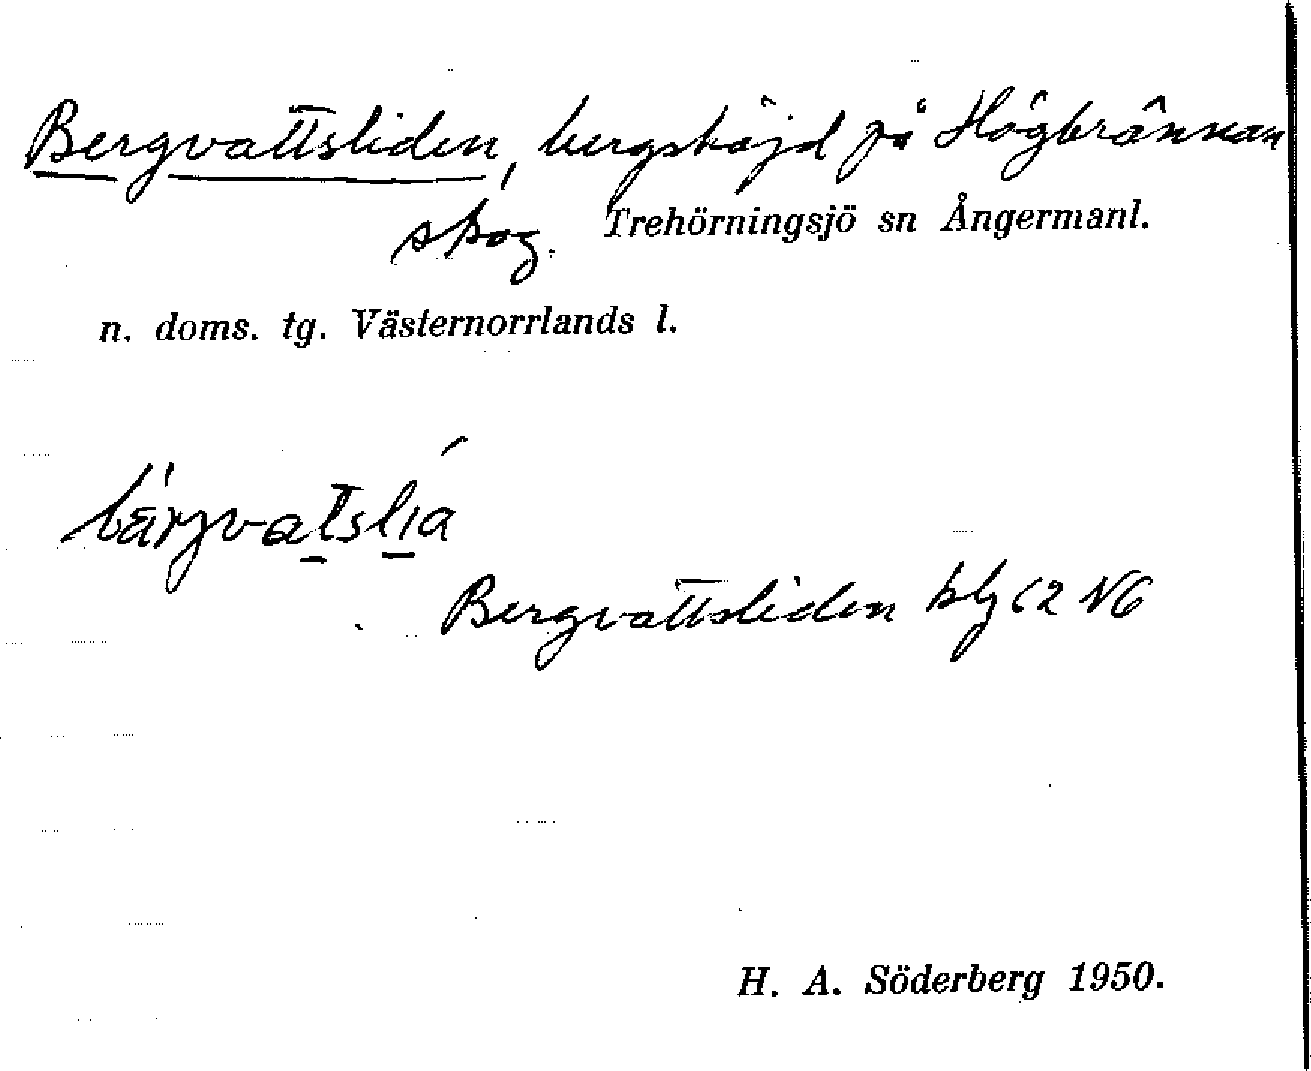 Bergvattsliden, bergshöjd på Högbrännan
skog. Trehörningsjö sn Ångermanl.
n. doms. tg. Västernorrlands l.
bärjvatslia
Bergvattsliden blg 62 NG
H. A. Söderberg 1950.